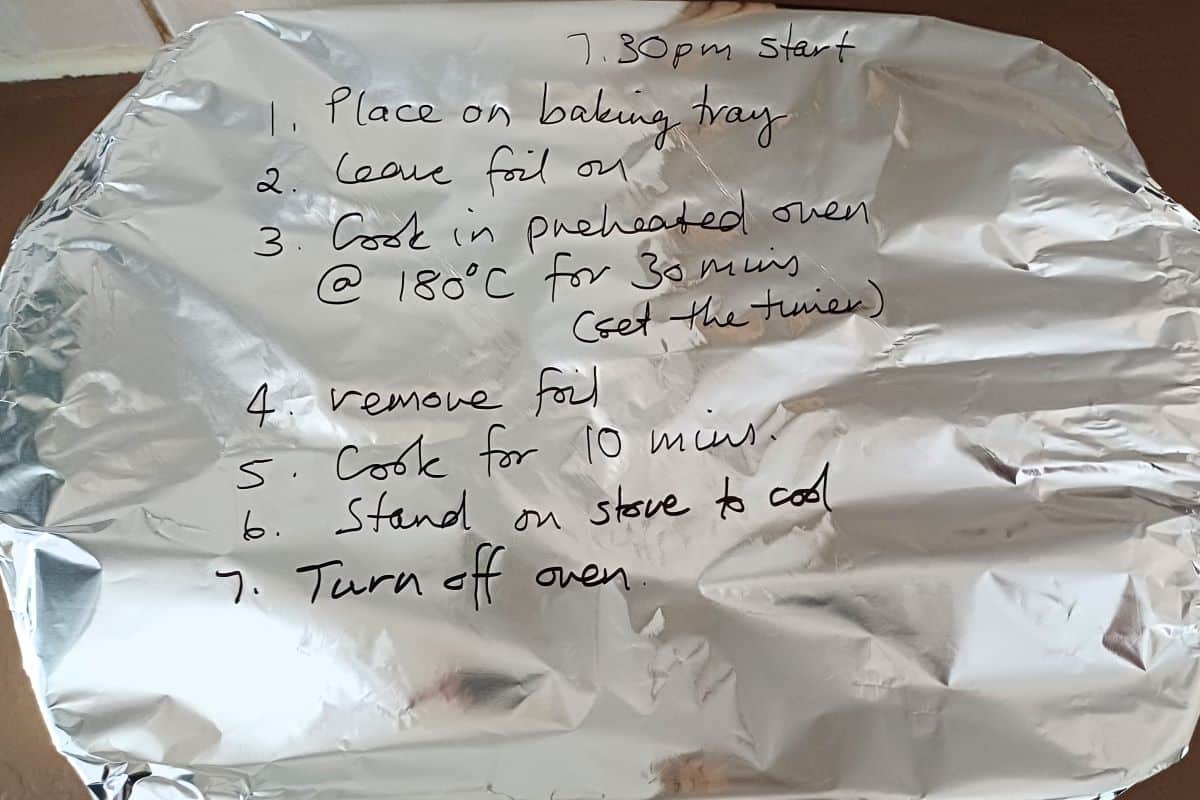 7.30pm start
1. Place on baking tray
2. Leave foil on
3. Cook in preheated oven
@ 180°C for 30 mins
(set the timer)
4. remove foil
5. Cook for 10 mins.
6. Stand on stove to cool
7. Turn off oven.